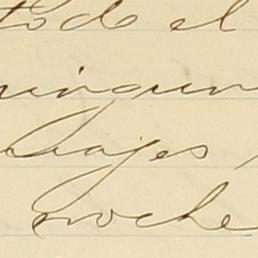 todo el
ningun
viajes
noche